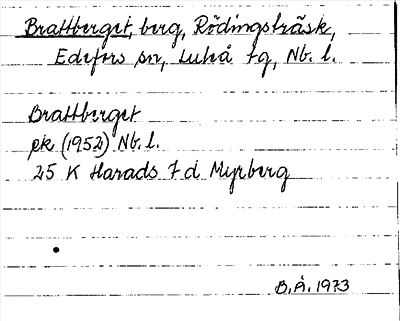 Brattberget, berg, Rödingsträsk,
Edefors sn, Luleå tg, Nb. l.
Brattberget
ek (1952) Nb. l.
25 K Harads 7 d Myrberg
B.Å. 1973